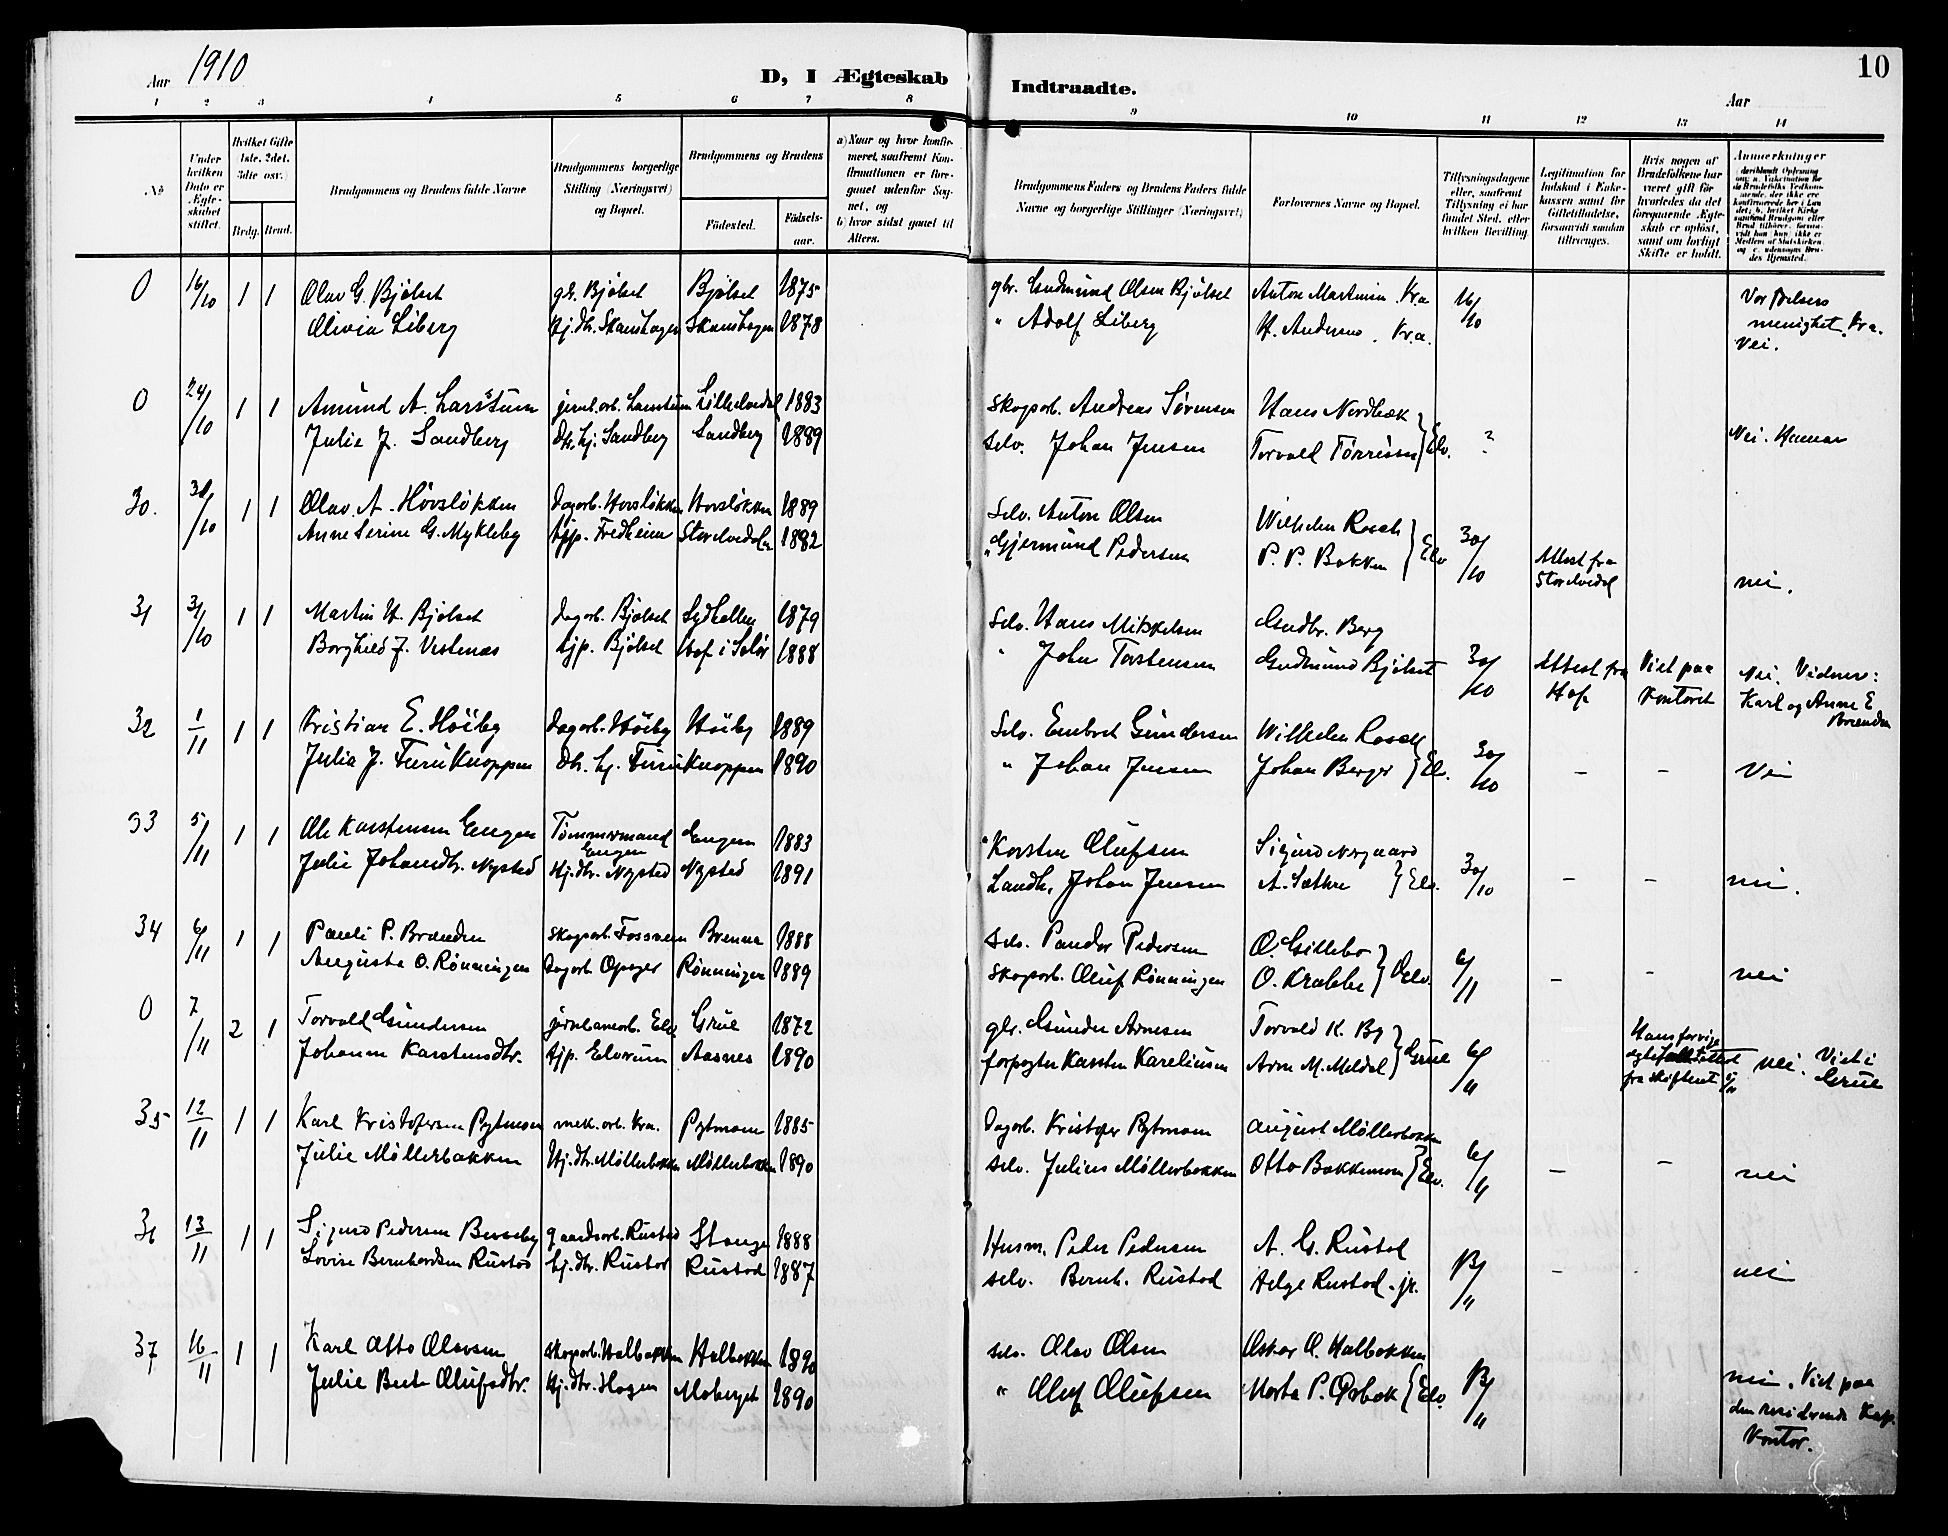 Aar 1910
D, I Ægteskab
Indtraadte.
10
Aar
1 2 3 4 5 6 7 8
9 10 11 12 13 14
No
Under hvilken Dato er Ægteskabet stiftet.
Hvilket Gifte 1ste, 2det, 3die osv.)
Brdg. Brud.
Brudgommens og Brudens fulde Navne
Brudgommens borgerlige Stilling (Næringsvei) og Bopæl.
Brudgommens og Brudens
Fødested.
Fødselsaar.
a) Naar og hvor konfirmeret, saafremt Konfirmationen er foregaaet udenfor Sognet, og
b) hvor sidst gaaet til Alters.
Brudgommens Faders og Brudens Faders fulde Navne og borgerlige Stillinger (Næringsvei)
Forlovernes Navne og Bopæl.
Tillysningsdagene eller, saafremt Tillysning ei har fundet Sted, efter hvilken Bevilling
Legitimation for Indskud i Enkekassen samt for Giftetilladelse, forsaavidt saadan tiltrænges.
Hvis nogen af Brudefolkene har været gift før hvorledes da det foregaaende Ægteskab er opløst, samt om lovligt Skifte er holdt.
Anmærkninger
0 16/10 1 1 Olav G. Bjølset gbr. Bjølset Bjølset 1875 gbr. Gudmund Olsen Bjølset Anton Martinsen Kra 16/10 Vor frelsers
Olivia Liberg hj.dtr. Skanshagen Skanshagen 1878 " Adolf Liberg H. Andersen. Kr.a. menighet. Kra.
Nei.
0 24/10 1 1 Amund A. Larstuen jernb.arb. Larstuen Lillelvedal 1883 skogarb. Andreas Sørensen Hans Nordbæk
Julia J. Sandberg dtr. hj. Sandberg Sandberg 1889 selv. Johan Jensen Torvald Tørrissen Elv. ? Nei. Hamar
30. 30/10 1 1 Olav A. Hovsløkken dagarb. Hovsløkken Hovsløkken 1889 Selv. Anton Olsen Wilhelm Rasch
Anne Serine G. Mykleby tjp. Fredheim Storelvedalen 1882 " Gjermund Pedersen P. P. Bakken Elv 30/10 Attest fra Storelvedal nei.
31 31/10 1 1 Martin H. Bjølset dagarb. Bjølset Sydhallen 1879 Selv. Hans Mikkelsen Gudbr. Berg
Borghild J. Vestenæs tjp. Bjølset Hof i Solør 1888 " John Torstensen Gudmund Bjølset 30/10 Attest fra Hof Viet paa Kontoret Nei. Vidner: Karl og Anne E Brænden
32 1/11 1 1 Kristian E. Høiby dagarb. Høiby Høiby 1889 Selv. Embret Gundersen Wilhelm Rasch
Julia J. Furuknappen dtr. hj. Furuknappen 1890 " Johan Jensen Johan Berger Elv. 30/10 – – Nei
33 5/11 1 1 Ole Karstensen Engen Tømmermand Engen Engen 1883 " Karsten Olufsen Sigurd Norgaard
Julie Johansdtr. Nysted Hj.dtr. Nysted Nysted 1891 Landh. Johan Jensen A. Sæthre Elv. 30/10 – – nei.
34 6/11 1 1 Pauli P. Brænden skogarb. Fossnem Brenna 1888 Selv. Pander Pedersen O. Gillebo
Augusta O. Rønningen dagarb Opager Rønningen 1889 skogarb. Oluf Rønningen O. Krabbe Elv. 6/11 – – nei
0 7/11 2 1 Torvald Gundersen jernbanearb. Elv. Grue 1872 gbr. Gunder Arnesen Torvald K. By
Johanne Karstensdtr. tjp. Elverum Aasnes 1890 forpagter Karsten Kareliusen Arne M. Meldal Grue 6/11 nei. Viet i Grue
35 12/11 1 1 Karl Kristofersen Pytmoen mek. arb. Kra. Pytmoen 1885 Dagarb. Kristofer Pytmoen August Møllerbakken
Julie Møllerbakken Hj.dtr. Møllerbakken Møllerbakken 1890 selv. Julius Møllerbakken Otto Bakkemoen Elv. 6/11 – – nei
36 13/11 1 1 Sigurd Pedersen gaardsarb. Rustad Stange 1888 Husm. Peder Pedersen A. G. Rustad
Lovise Bernhardsen Rustad hj.dtr. Rustad Rustad 1887 selv. Bernh. Rustad Helge Rustad. jr. 13/11 – nei
37 16/11 1 1 Karl Otto Olavsen skogarb. Halbakken Halbakken 1890 selv. Olav Olsen Oskar O. Halbakken
Julie Olufsdtr. Hj.dtr. Hagen Moberget 1890 " Oluf Olufsen Marta P. Ørbæk Elv. 13/11 nei. Viet paa
den residerende Kap. Kontor.